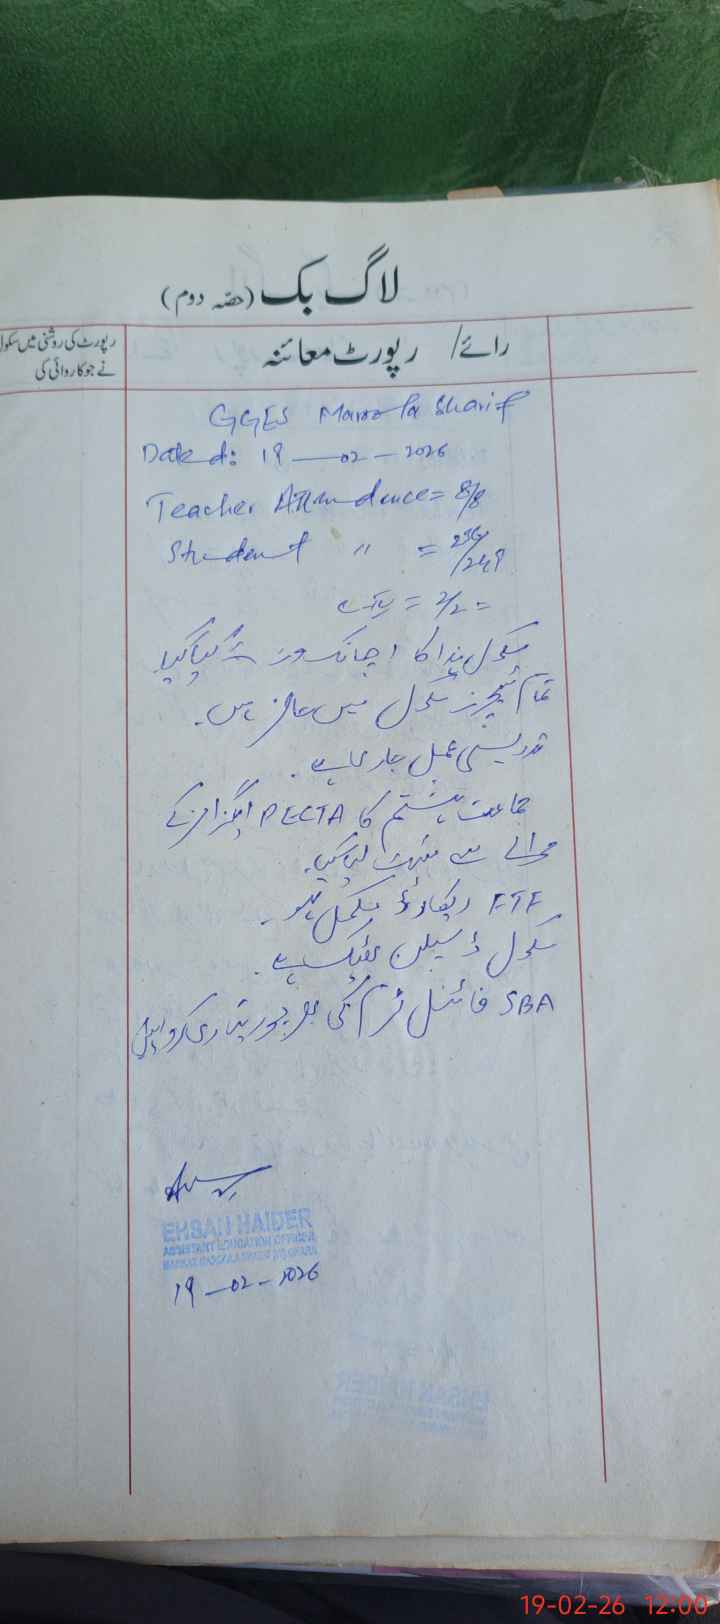 لاگ بک (حصّہ دوم)
رائے/ رپورٹ معائنہ
رپورٹ کی روشنی میں سکول
نے جو کاروائی کی
GGES Marola Sharif
Dated: 19-02-2026
Teacher Attendance = 8/8
Student " = 236/249
= 2/2 =
سکول ہذا کا اچانک وزٹ کیا گیا۔
تمام ٹیچرز سکول میں حاضر ہیں۔
تدریسی عمل جاری ہے۔
جماعت ہشتم کا PECTA ایگزامز کے
حوالے سے ٹیسٹ لیا گیا۔
FTF ریکارڈ مکمل ہو۔
سکول ڈسپلن ٹھیک ہے۔
SBA فائنل ٹرم کی بھرپور تیاری کروائیں
EHSAN HAIDER
ASSISTANT EDUCATION OFFICER
MARKAZ
19-02-2026
19-02-26 12:00